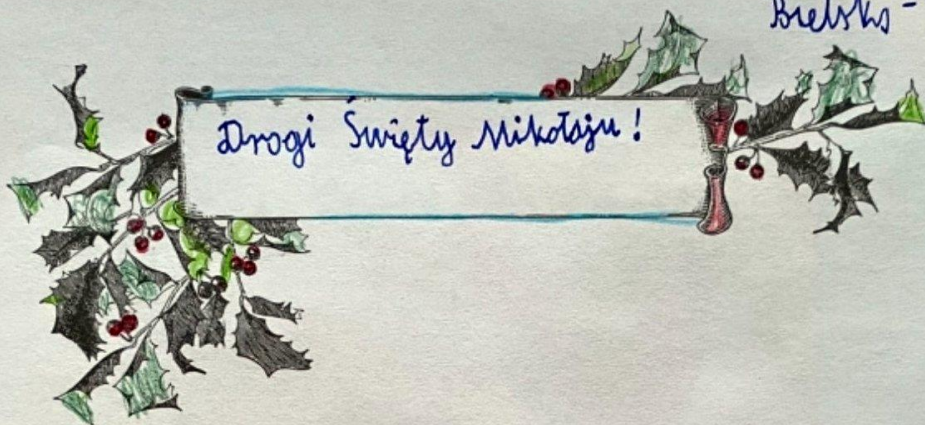 Bielsko -
Drogi Święty Mikołaju!